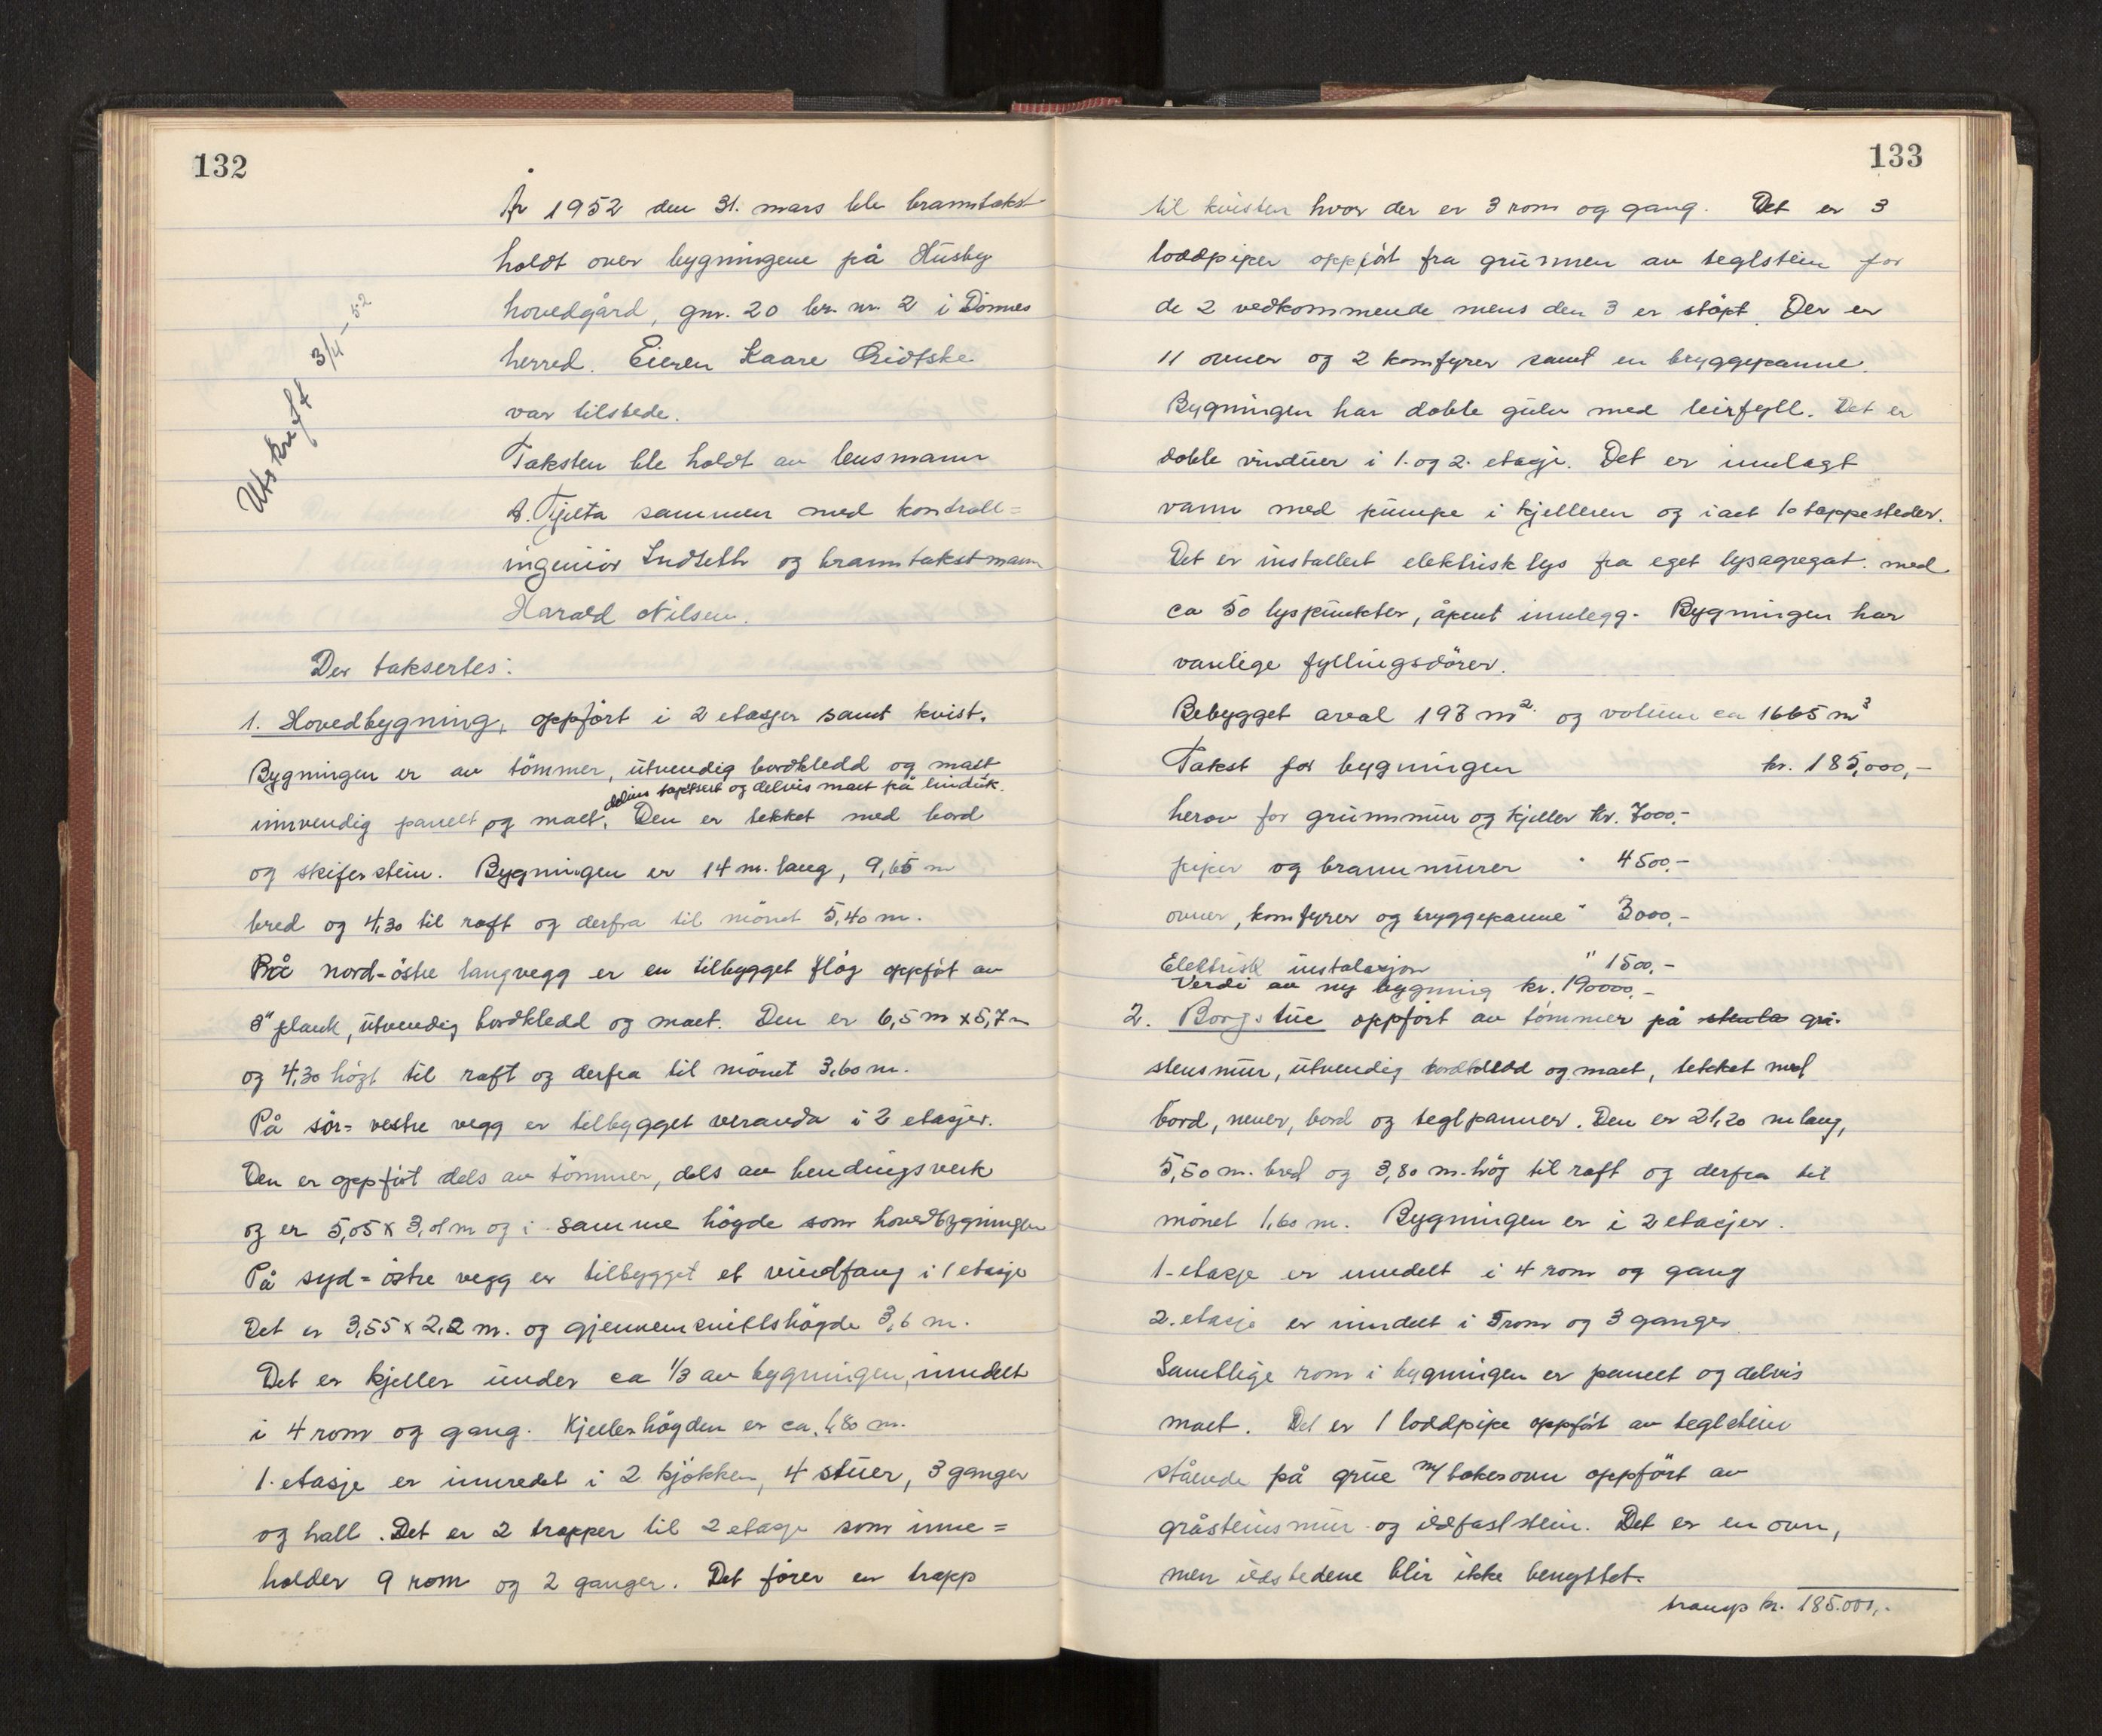 132
År 1952 den 31. mars ble branntakst
holdt over bygningene på Husby
hovedgård, gnr. 20 br. nr. 2 i Dönnes
herred. Eieren Kaare
var tilstede.
Utskrift 3/4-52
Taksten ble holdt av lensmann
A. Tjelta sammen med kontroll=
ingeniör Indseth og branntakstmann
Harald Nilsen.
Der taksertes:
1. Hovedbygning, oppfört i 2 etasjer samt kvist.
Bygningen er av tömmer, utvendig bordkledd og malt
delvis tapetsert og delvis malt på linduk.
innvendig panelt og malt. Den er tekket med bord
og skiferstein. Bygningen er 14 m. lang, 9,65 m
bred og 4,30 til raft og derfra til mönet 5,40 m.
På nord-östre langvegg er en tilbygget flög oppfört av
3" plank, utvendig bordkledd og malt. Den er 6,5 m x 5,7 m
og 4,30 högt til raft og derfra til mönet 3,60 m.
På sör= vestre vegg er tilbygget veranda i 2 etasjer.
Den er oppfört dels av tömmer, dels av bendingsverk
og er 5,05 x 3,01 m og i samme högde som hovedbygningen
På syd=östre vegg er tilbygget et vindfang i 1 etasje
Det er 3,55 x 2,2 m. og gjennemsnittshögde 3,6 m.
Det er kjeller under ca 1/3 av bygningen, inndelt
i 4 rom og gang. Kjellerhögden er ca. 1,80 m.
1. etasje er innredet i 2 kjökken, 4 stuer, 3 ganger
og hall. Det er 2 trapper til 2 etasje som inne=
holder 9 rom og 2 ganger. Det förer en trapp
133
til kvisten hvor der er 3 rom og gang. Det er 3
loddpiper oppfört fra grunnen av teglstein for
de 2 vedkommende mens den 3 er stöpt. Der er
11 ovner og 2 komfyrer samt en bryggepanne.
Bygningen har doble gulv med leirfyll. Det er
doble vinduer i 1. og 2. etasje. Det er innlagt
vann med pumpe i kjelleren og i alt 10 tappesteder.
Det er installert elektrisk lys fra eget lysagregat. med
ca 50 lyspunkter, åpent innlegg. Bygningen har
vanlige fyllingsdörer.
Bebygget areal 198 m2. og volum ca 1665 m3
Takst for bygningen kr. 185,000,-
herav for grunnmur og kjeller kr. 7000,-
piper og brannmurer " 4500,-
ovner, komfyrer og bryggepanne " 3000,-
Elektrisk instalasjon " 1500,-
Verdi av ny bygning kr. 190000,-
2. Borgstue oppfört av tömmer på grå-
stensmur, utvendig bordkledd og malt, tekket med
bord, never, bord og teglpanner. Den er 21,20 m lang,
5,50 m. bred og 3,80 m. hög til raft og derfra til
mönet 1,60 m. Bygningen er i 2 etasjer.
1. etasje er inndelt i 4 rom og gang
2. etasje er inndelt i 5 rom og 3 ganger
Samtlige rom i bygningen er panelt og delvis
malt. Det er 1 loddpipe oppfört av teglstein
stående på grue m/ bakerovn oppfört av
gråsteinsmur og ildfast stein. Det er en ovn,
men ildstedene blir ikke benyttet.
transp kr. 185.000,-